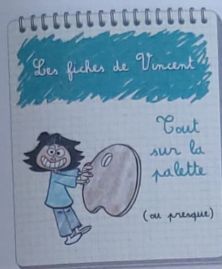 Les fiches de Vincent
Tout
sur la
palette
(ou presque)